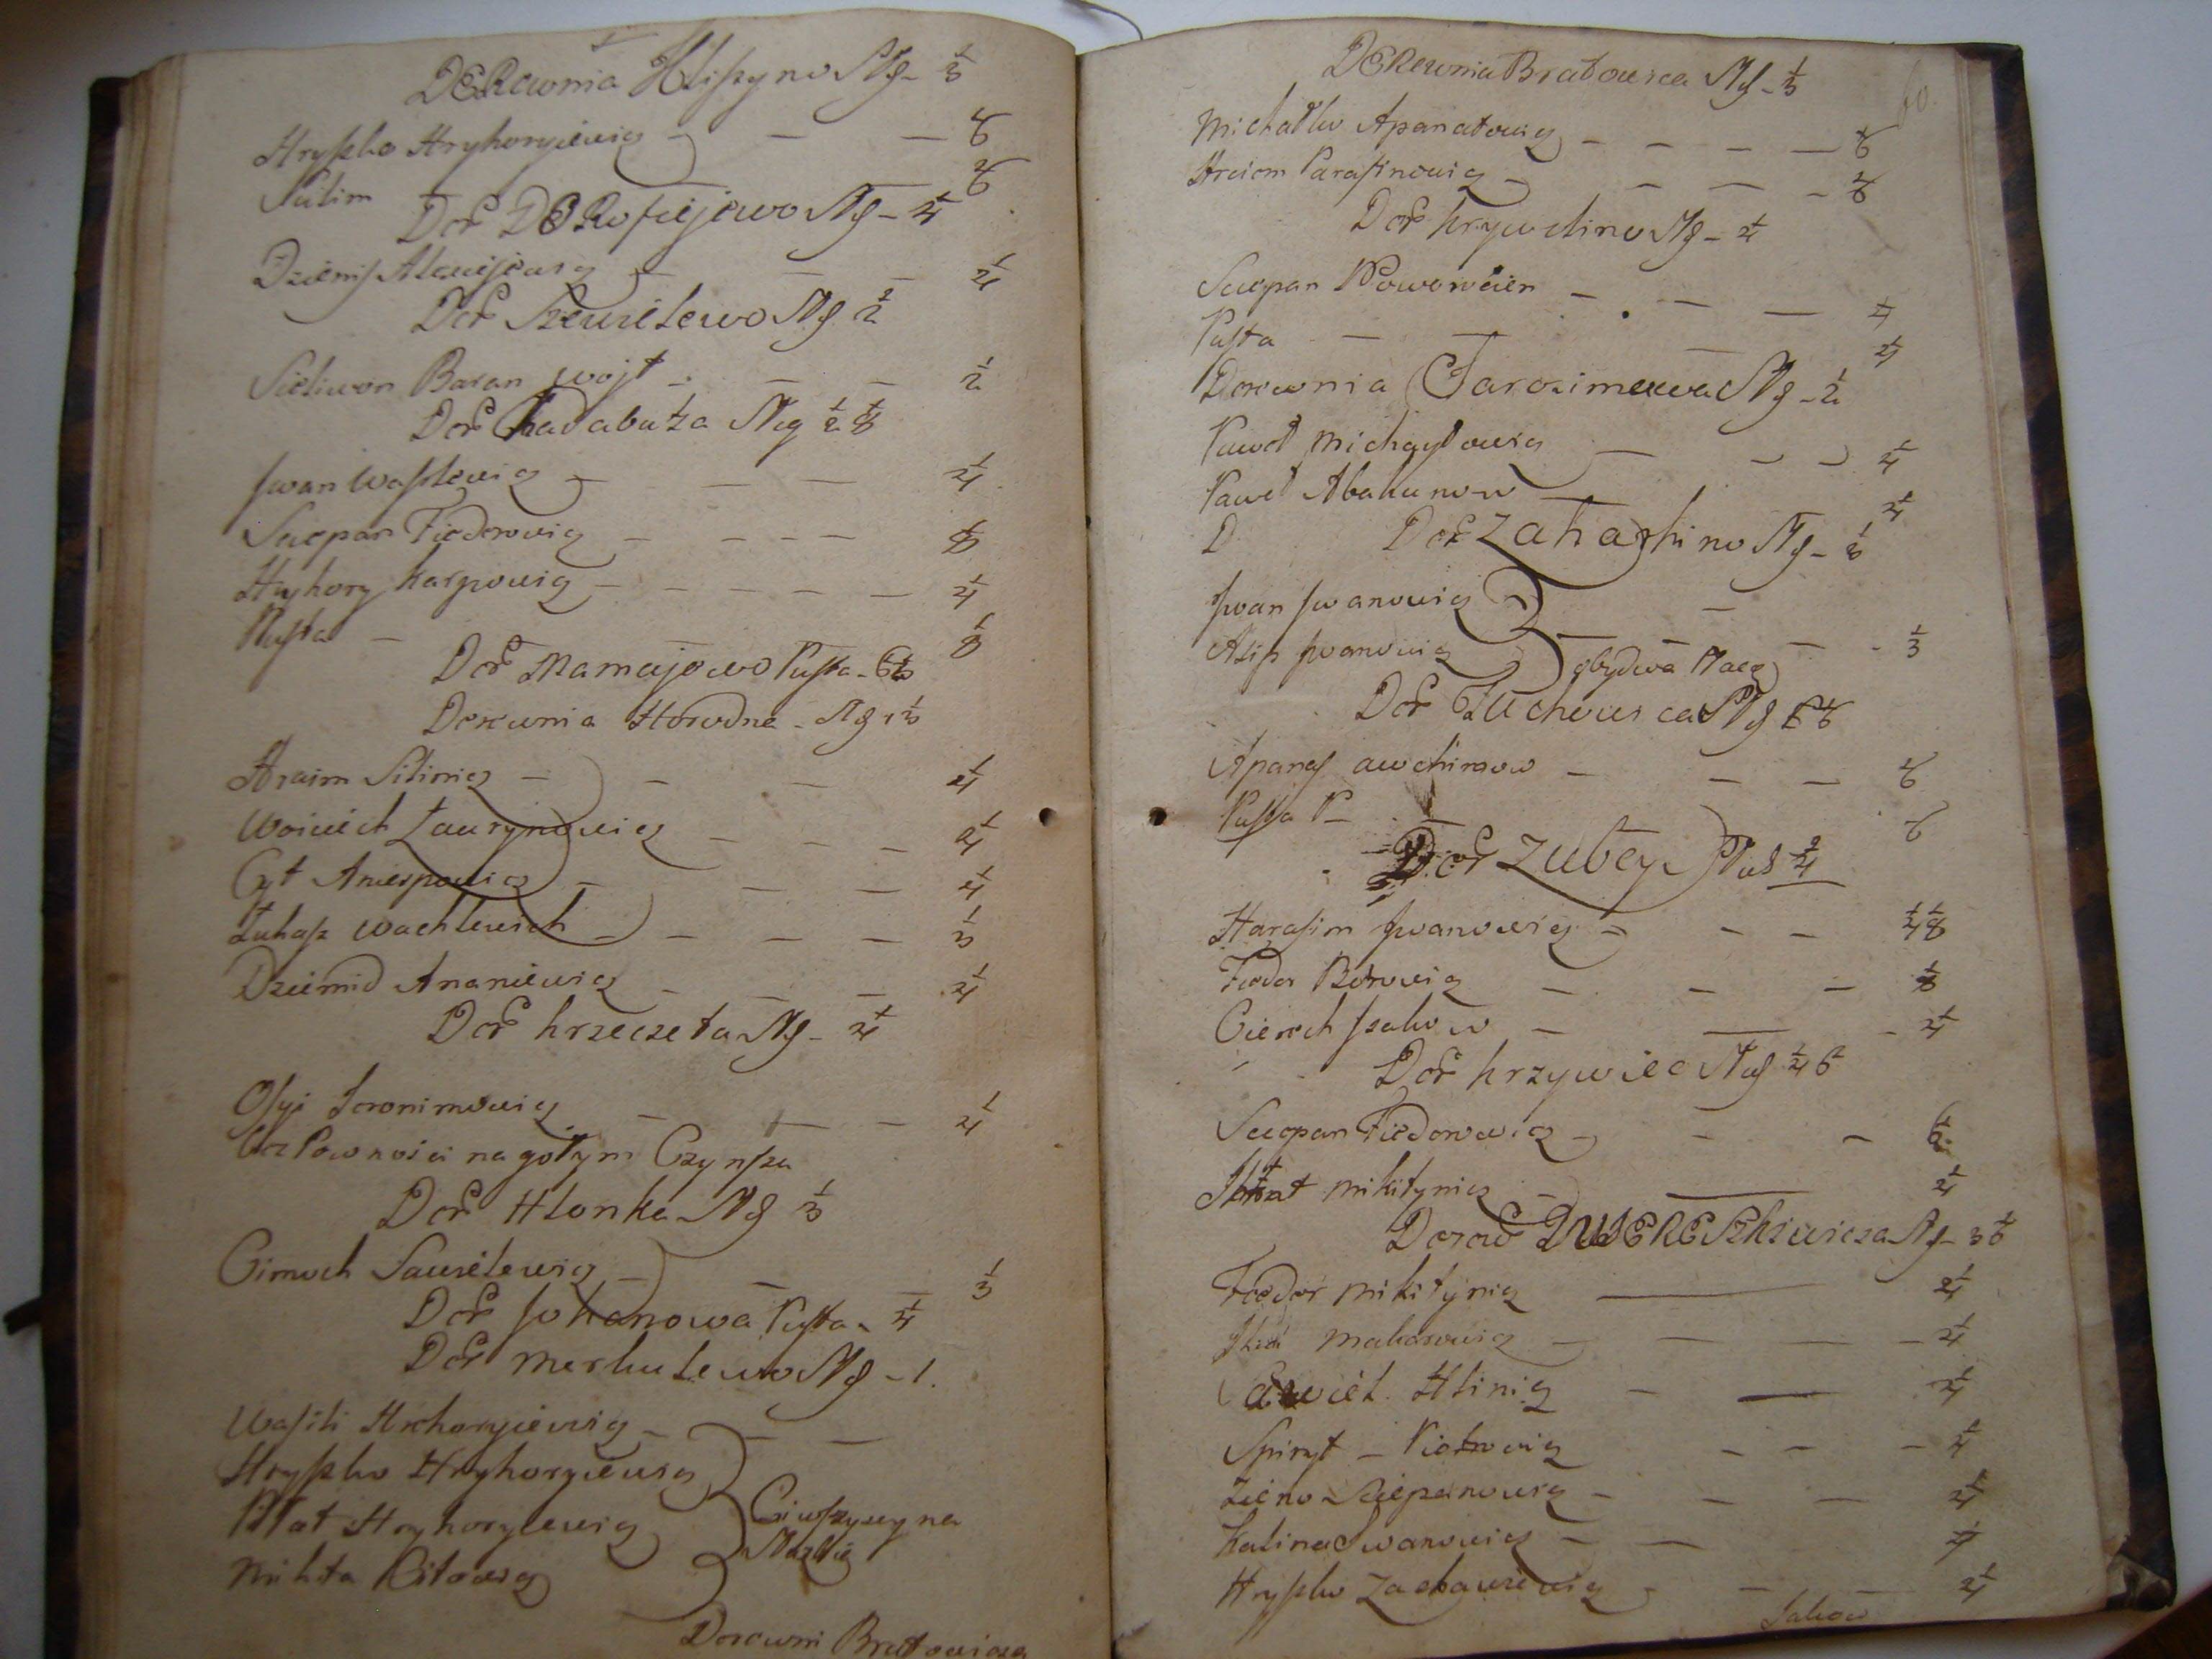 DERewnia Hliszyno Mg - 1/3
Hryszko Hryhoryiewicz - - - 1/6
Silim 1/6
Der DORofiejewo Mg - 1/4
Dziemis Alexiejewicz - - - 1/4
Der Szewielewo Mg 1/2
Sieliwon Baran wojt - - - 1/2
Der Kadabuża Mg 1/2 1/8
Jwan Waszlewicz - - - 1/4
Sciepan Fiedorowicz - - - - 1/8
Hryhory Karpowicz - - - - - 1/4
Pusta - 1/8
Der Mamajowo Pusta -
Derewnia Horodne - Mg 1 1/3
Hraim Silinicz - - - 1/4
Woiciech Ławrynowicz - - - 1/4
Cyt - - - 1/4
Łukasz Wachlewich - - - - 1/3
Dziemid Ananiewicz - - - 1/4
Der Krzeczeta Mg - 1/4
Osyi Jeronimowicz - - - 1/4
na gołym Czynszu
Der Hlonka Mg 1/3
Cimoch Sawielewicz - - - 1/3
Der Johanowa Pusta - 1/4
Der Merkulewo Mg - 1.
Wasili Hrehoryiewicz - - -
Hryszko Hryhoryiewicz
Płat Hryhoryiewicz
na
Mikita Citowicz
Derewni Bratowicza
DERewnia Bratowica Mg - 1/3
Michałko Apanatowicz - - - - 1/6
Hrciom Parasinowicz - - - - 1/6
Der Krywelino Mg - 1/4
Sciepan - - - 1/4
Pusta - - - 1/4
Derewnia Jarozimowa Mg - 1/2
Paweł Michayłowicz - - - 1/4
Paweł Abakunow - 1/4
D Der Zaharhino Mg - 1/3
Jwan Jwanowicz - -
Asip Jwanowicz - - - - 1/3
obydwa
Der Żuchowica Mg
Apanas Awchimow - - - 1/6
Pusta P - 1/6
Der Zubey Pus 3/4
Harasim Jwanowicz - - - 1/4 1/8
Fiedor Botowicz - - - 1/8
Cierech Jsakow - - - 1/4
Der Krzywiec Mg 1/4 1/6
Sciepan Fiedorowicz - - - 1/6
Mikitynicz - - 1/4
Derew Mg - 3 1/6
Fiedor Mikitynicz - 1/4
Makarowicz - - - - 1/4
Sawieł Hlinicz - - 1/4
Spiryt - Piotrowicz - - - 1/4
Zieno Sciepanowicz - - - 1/4
Kalina Jwanowicz - - 1/4
Hryszko Zachawiewicz - - - 1/4
Jakow